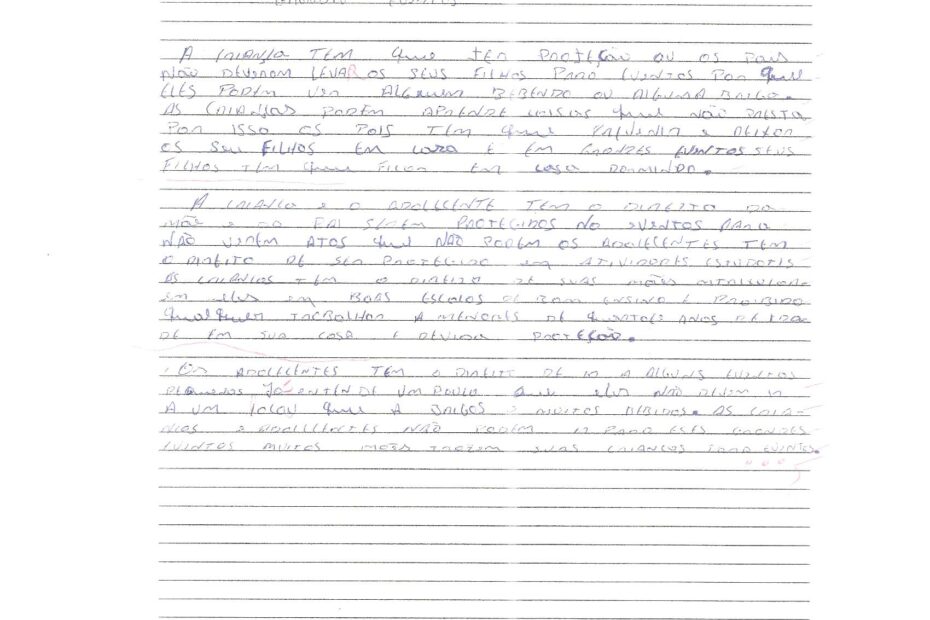 GRANDES EVENTOS
A CRIANÇA TEM que TER PROTEÇÃO OU OS PAIS
NÃO DEVERAM LEVAR OS SEUS FILHOS PARA EVENTOS POR que
ELES PODEM VER ALGUEM BEBENDO OU ALGUMA BRIGA.
AS CRIANÇAS PODEM APRENDE COISAS que NÃO PRESTA
POR ISSO OS PAIS TEM que PREVENIR E DEIXAR
OS SEU FILHOS EM CAZA E EM GRANDES EVENTOS SEUS
FILHOS TEM que FICAR EM CASA DORMINDO.
A CRIANÇA E O ADOLECENTE TEM O DIREITO DA
MÃE E DO PAI SEREM PROTEGIDOS NO EVENTOS PARA
NÃO VEREM ATOS que NÃO PODEM OS ADOLECENTES TEM
O DIREITO DE SER PROTEGIDO em ATIVIDADES
AS CRIANÇAS TEM O DIREITO DE SUAS MÃES
em eles em BOAS ESCOLAS DE BOM ENSINO É PROIBIDO
qualquer TRABALHOR A MENORES DE quatorze ANOS DE IDA-
DE EM SUA CASA E DEVIDA PROTEÇÃO.
OS ADOLECENTES TEM O DIREITO DE IR A ALGUNS EVENTOS
PEQUENOS JÁ ENTENDE UM POUCO que eles NÃO DEVEM IR
A UM LOCAU que A BRIGAS E MUITAS BEBIDAS. AS CRIA-
NÇAS E ADOLECENTES NÃO PODEM IR PARA ESTES GRANDES
EVENTOS MUITAS MÃES TRAZEM SUAS CRIANÇAS PARA EVENTOS.